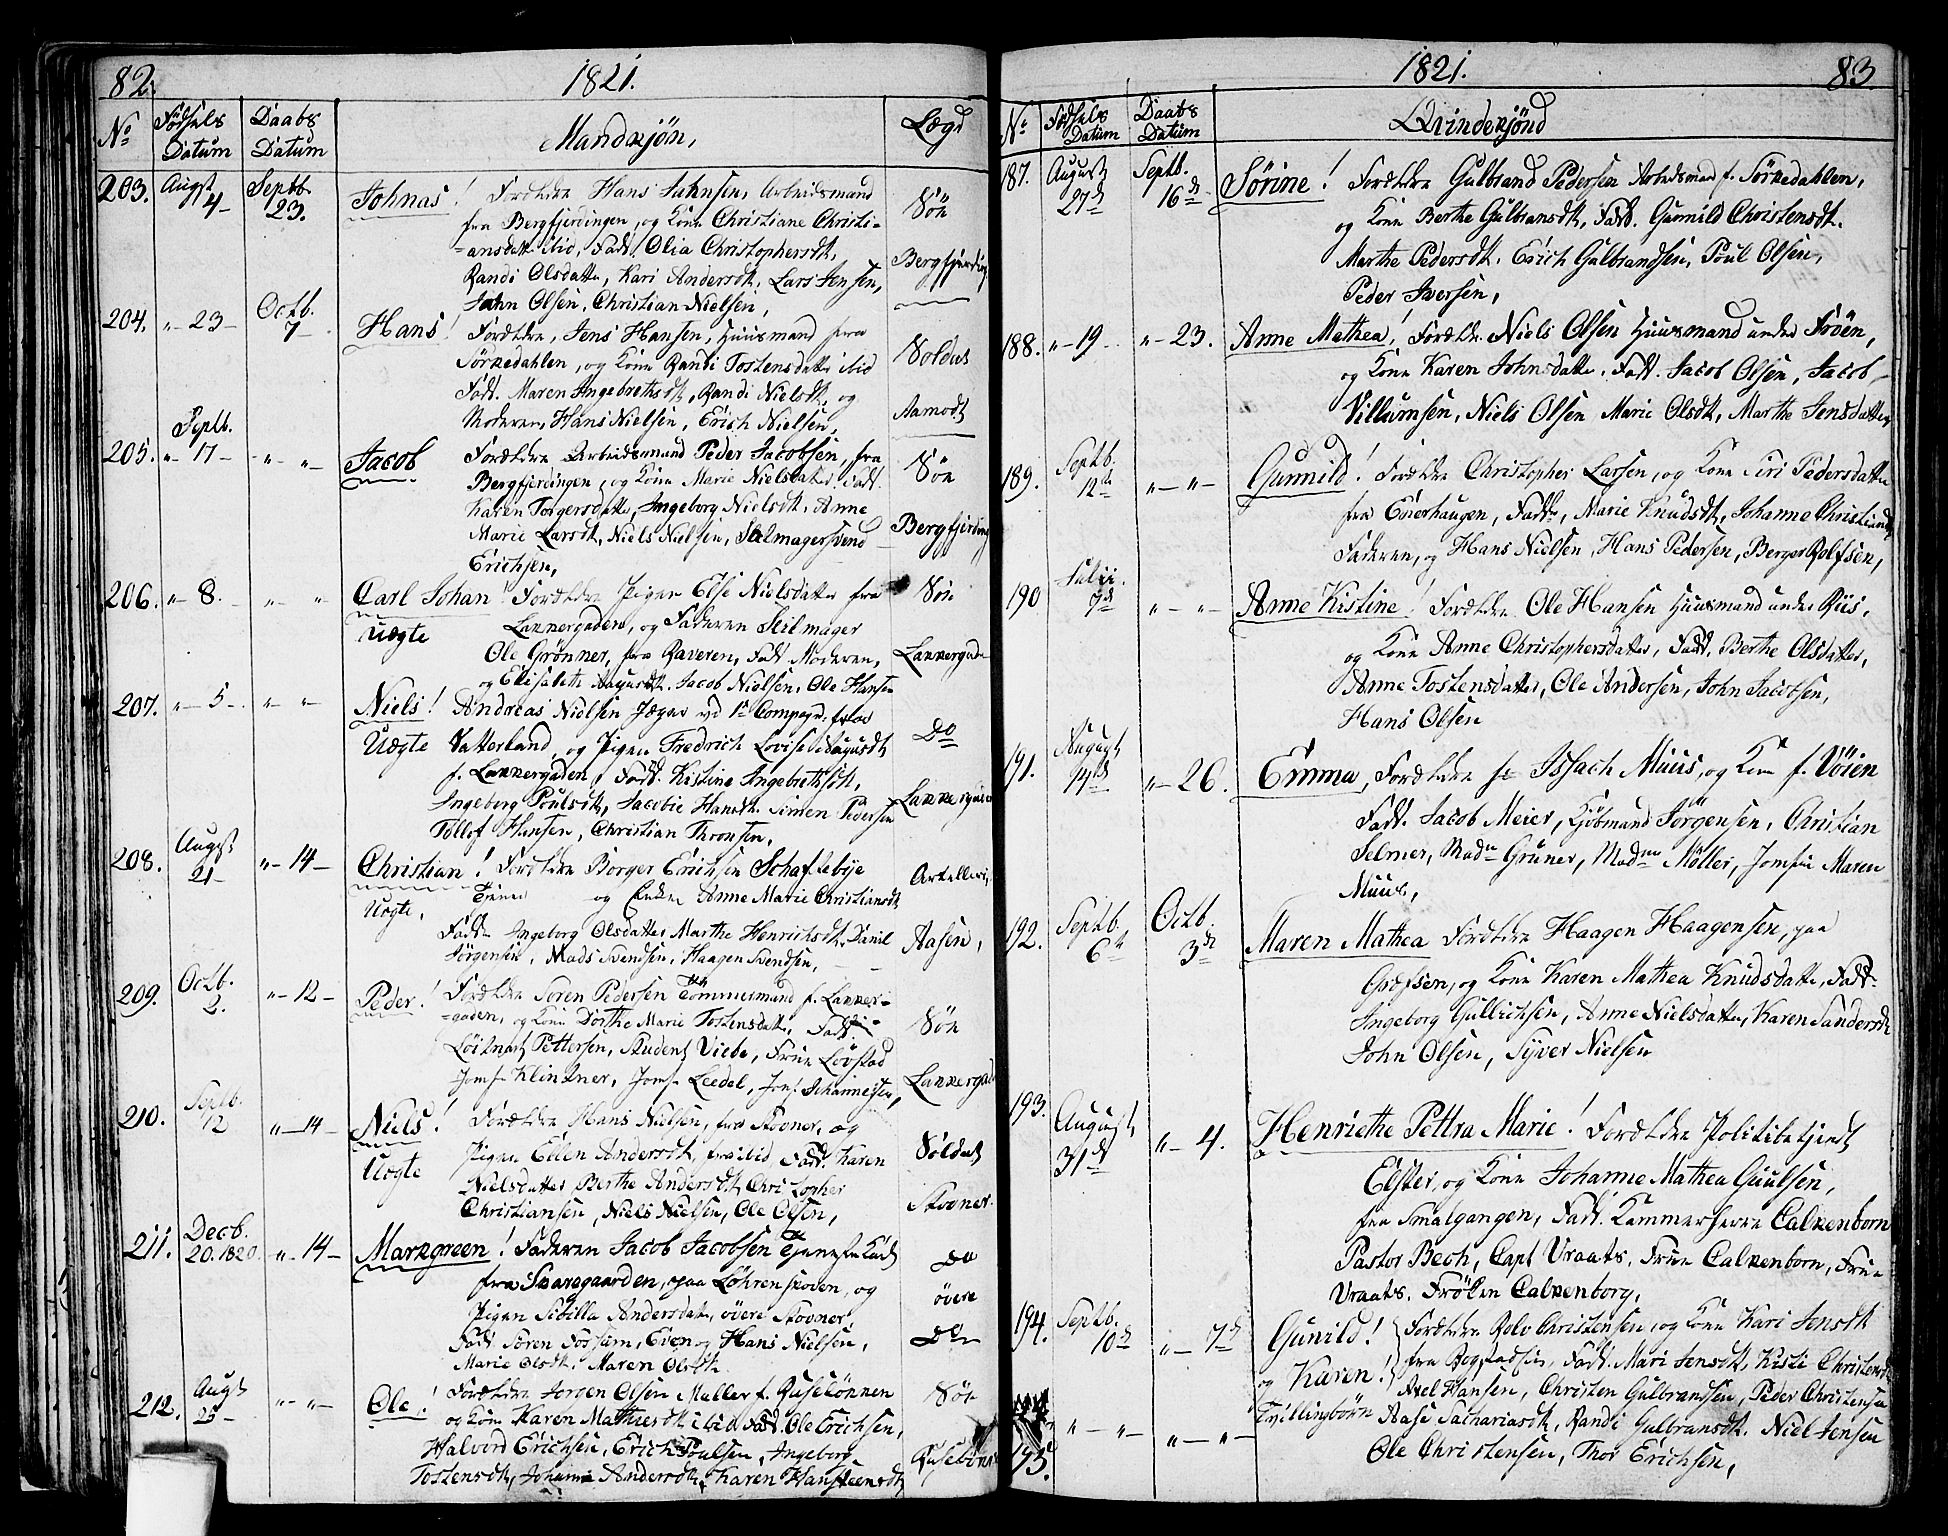 82. 1821.
No Fødsels Datum Daabs Datum Mandkjön, Lægd
203. Augst 4 – Septb. 23. Johnas! Forældre Hans Jahnsen, Arbeidsmand Sön
fra Bergfjerdingen, og Kone Christiane Christi-
=ansdatt. ibid, Fadd. Olia Christophersdt, Bergfjerding
Randi Olsdatter, Kari Andersdt, Lars Jensen,
John Olsen, Christian Nielsen,
204. " – 23 – Octb. 7 – Hans! Forældre, Jens Hansen, Huusmand fra Soldat
Sörkedahlen, og Kone Randi Tostensdatter ibid
Fadd. Maren Ingebrethsdt, Randi Nielsdt, og Aamodt
Moderen, Hans Nielsen, Erich Nielsen,
205. Septb. " – 17 – " – " – Jacob Forældre Arbeidsmand Peder Jacobsen, fra Sön
Bergfjerdingen, og Kone Marie Nielsdatter, Fadd.
Karen Torgersdatter, Ingeborg Nielsdt, Anne
Marie Larsdt, Niels Nielsen, Salmagersvend Bergfjerding
Erichsen,
206. " – 8. – " " Carl Johan! Forældre Pigen Else Nielsdatter fra Sön
Uægte Lakkergaden, og Faderen Stilmager
Ole Grönner, fra Raveren, Fadd Moderen, Lakkergade
og Elisabeth Augusdt. Jacob Nielsen, Ole Hansen
207. " – 5 – " " Niels! Andreas Nielsen Jæger ved 1ste Compagn. fra Do
Uægte Vatterland, og Pigen Fredrich Lovise Augusdt
f. Lakkergaden, Fadd. Kistine Ingebrethsdt,
Ingeborg Poulsdt, Jacobie Hansdt. Simen Pedersen Lakkergaden
Tollef Hansen, Christian Thronsen.
208. Augst 21 – " – 14 – Christian! Forældre Borger Erichsen Schaftebye Artelleri,
Uægte, Tjener og Enke Anne Marie Christiansdt
Fadd. Ingeborg Olsdatter Marthe Henrichsdt, Daniel Aasen,
Jörgensen, Mads Svendsen, Haagen Svendsen,
209. Octb. 2. " – 12 – Peder! Forældre Soren Pedersen Tömmermand f. Lakker-
=gaden, og Kone Dorthe Marie Tostensdatter, Fadd. Sön
Löitnant Pettersen, Student Viebe, Frue Lövstad
Jomf. Klintner, Jomf. Leedel, Jomf. Johannesen, Lakkergade
210. Septb. 12 " – 14 – Niels! Forældre Hans Nielsen, fra Stovner, og
Uægte Pigen Ellen Andersdt, fra ibid, Fadd. Karen Soldat
Nielsdatter Berthe Andersdt, Christopher
Christiansen, Niels Nielsen, Ole Olsen, Stovner.
211. Decb. 20. 1820. " – 14 – Markgreen! Faderen Jacob Jacobsen Tjenestekarl Do
fra Svaregaarden, paa Löhrenskoven, og
Pigen Sibilla Andersdatter, övere Stovner, övere
Fadd. Sören Fossum, Even og Hans Nielsen, Do
Marie Olsdt, Maren Olsdt.
212. Augst 25 – " – " – Ole! Forældre Jorgen Olsen Muller f. Ruselökken Sön
og Kone Karen Mathiesdt ibid. Fadd. Ole Erichsen,
Halvord Erichsen, Erich Poulsen, Ingeborg
Tostensdt, Johanne Andersdt, Karen Hansteensdt
1821. 83.
No Fødsels Datum Daabs Datum Qvindekjönd
187. August 27de Septb. 16de Sörine! Forældre Gulbrand Pedersen Arbedsmand f. Sörkedahlen,
og Kone Berthe Gulbransdt, Fadd. Gunnild Christensdt.
Marthe Pedersdt. Erich Gulbrandsen, Poul Olsen,
Peder Iversen,
188. " – 19 – " – 23. Anne Mathea! Forældre Niels Olsen Huusmand under Fröen,
og Kone Karen Johnsdatter. Fadd. Jacob Olsen, Jacob
Villumsen, Niels Olsen Marie Olsdt, Marthe Jensdatter
189. Septb. 12te " – " – Gunnild! Forældre Christopher Larsen, og Kone Siri Pedersdatter
fra Enerhaugen, Fadd., Marie Knudsdt, Johanne Christiansdt
Faderen, og Hans Nielsen, Hans Pedersen, Berger Rolfsen,
190 Julii. 7de " – " – Anne Kistine! Forældre Ole Hansen Huusmand under Riis,
og Kone Anne Christophersdatter, Fadd. Berthe Olsdatter,
Anne Tostensdatter, Ole Andersen, John Jacobsen,
Hans Olsen
191. August 14de " – 26. Emma, Forældre Issach Muus, og Kone f. Vöien
Fadd. Jacob Meier, Kjöbmand Jörgensen, Christian
Selmer, Madm Gruner, Madm Møller, Jomfru Maren
Muus,
192. Septb. 6te Octb. 3de Maren Mathea Forældre Haagen Haagensen, paa
Græfsen, og Kone Karen Mathea Knudsdatter, Fadd.
Ingeborg Gullichsen, Anne Nielsdatter, Karen Sandersdt
John Olsen, Syver Nielsen
193. August 31de " – 4. Henriethe Pettra Marie! Forældre Politibetjendt
Elster, og Kone Johanne Mathea Guulsen,
fra Smalgangen, Fadd. Kammerherre Calkenborn
Pastor Bech, Capt Vraats, Frue Calkenborn, Frue
Vraats. Fröken Calkenborg,
194. Septb. 10de " – 7de Gunild! Forældre Rolv Christensen, og Kone Kari Jensdt
og Karen! fra Bogstadlien, Fadd. Mari Jensdt, Kisti Christensdt
Tvillingbörn Axel Hansen, Christen Gulbrandsen, Peder Christensen
195. " – " – " – " – Aase Sachariasdt, Randi Gulbransdt. Niel Jensen
Ole Christensen, Thor Erichsen,